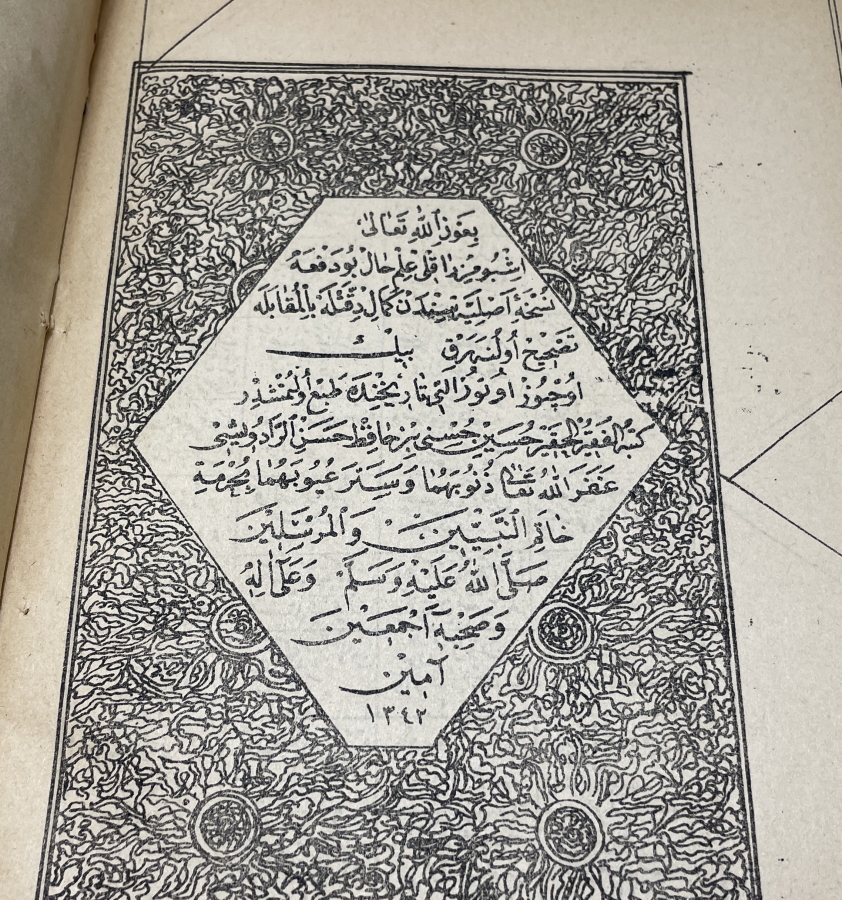 بِعَوْنِ اللّٰهِ تَعَالٰى
اشبُو مِزْرَاقْلِى عِلْمِ حَالْ بُو دَفْعَهْ
نُسْخَۀ اَصْلِيَّه سِنْدَنْ كَمَالِ دِقَّتْلَهْ بِالْمُقَابَلَه
تَصْحِيحْ اُولُنَهرَقْ بِيكْ
اوُچيُوزْ اوُتُوزْ اَلتِى تَارِيخِنْدَه طَبْعْ اُولُنْمُشْدُرْ
كتبه الفَقِيرُ الحَقِير حُسَيِن حُسْنِى بِنْ حَافِظْ حَسَنْ الرَّادُوِيشِى
غَفَرَ اللّٰهُ تَعَالٰى ذُنُوبَهُمَا وَسَتَرَ عُيُوبَهُمَا بِحُرْمَةِ
خَاتَمِ النَّبِيِّينَ وَالْمُرْسَلِينَ
صَلَّى اللّٰهُ عَلَيْهِ وَسَلَّمَ وَعَلٰى اٰلِهِ
وَصَحْبِهِ اَجْمَعِينَ
آمِينْ
١٣٤٢